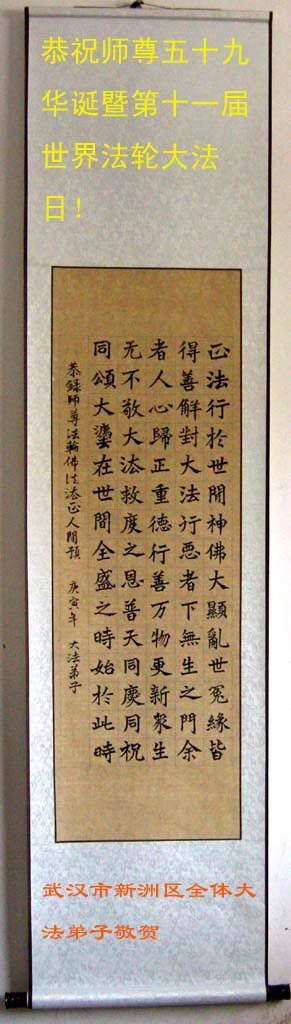 恭祝师尊五十九
华诞暨第十一届
世界法轮大法
日！
正法行於世間神佛大顯亂世冤緣皆
得善解對大法行惡者下無生之門余
者人心歸正重德行善万物更新眾生
无不敬大法救度之恩普天同慶同祝
同頌大灋在世間全盛之時始於此時
恭録師尊法輪佛法法正人間預 庚寅年 大法弟子
武汉市新洲区全体大
法弟子敬贺